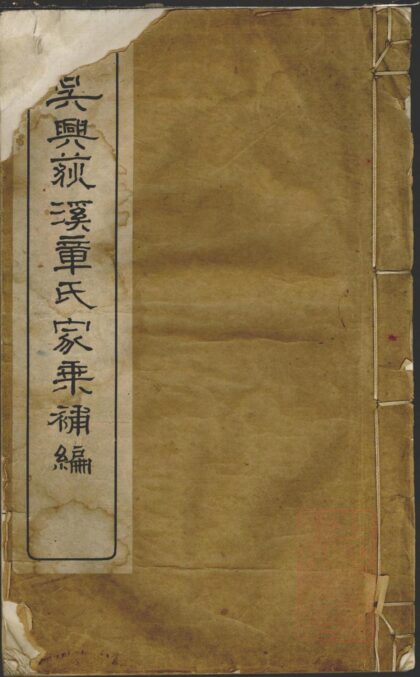 吳興荻溪章氏家乘補編